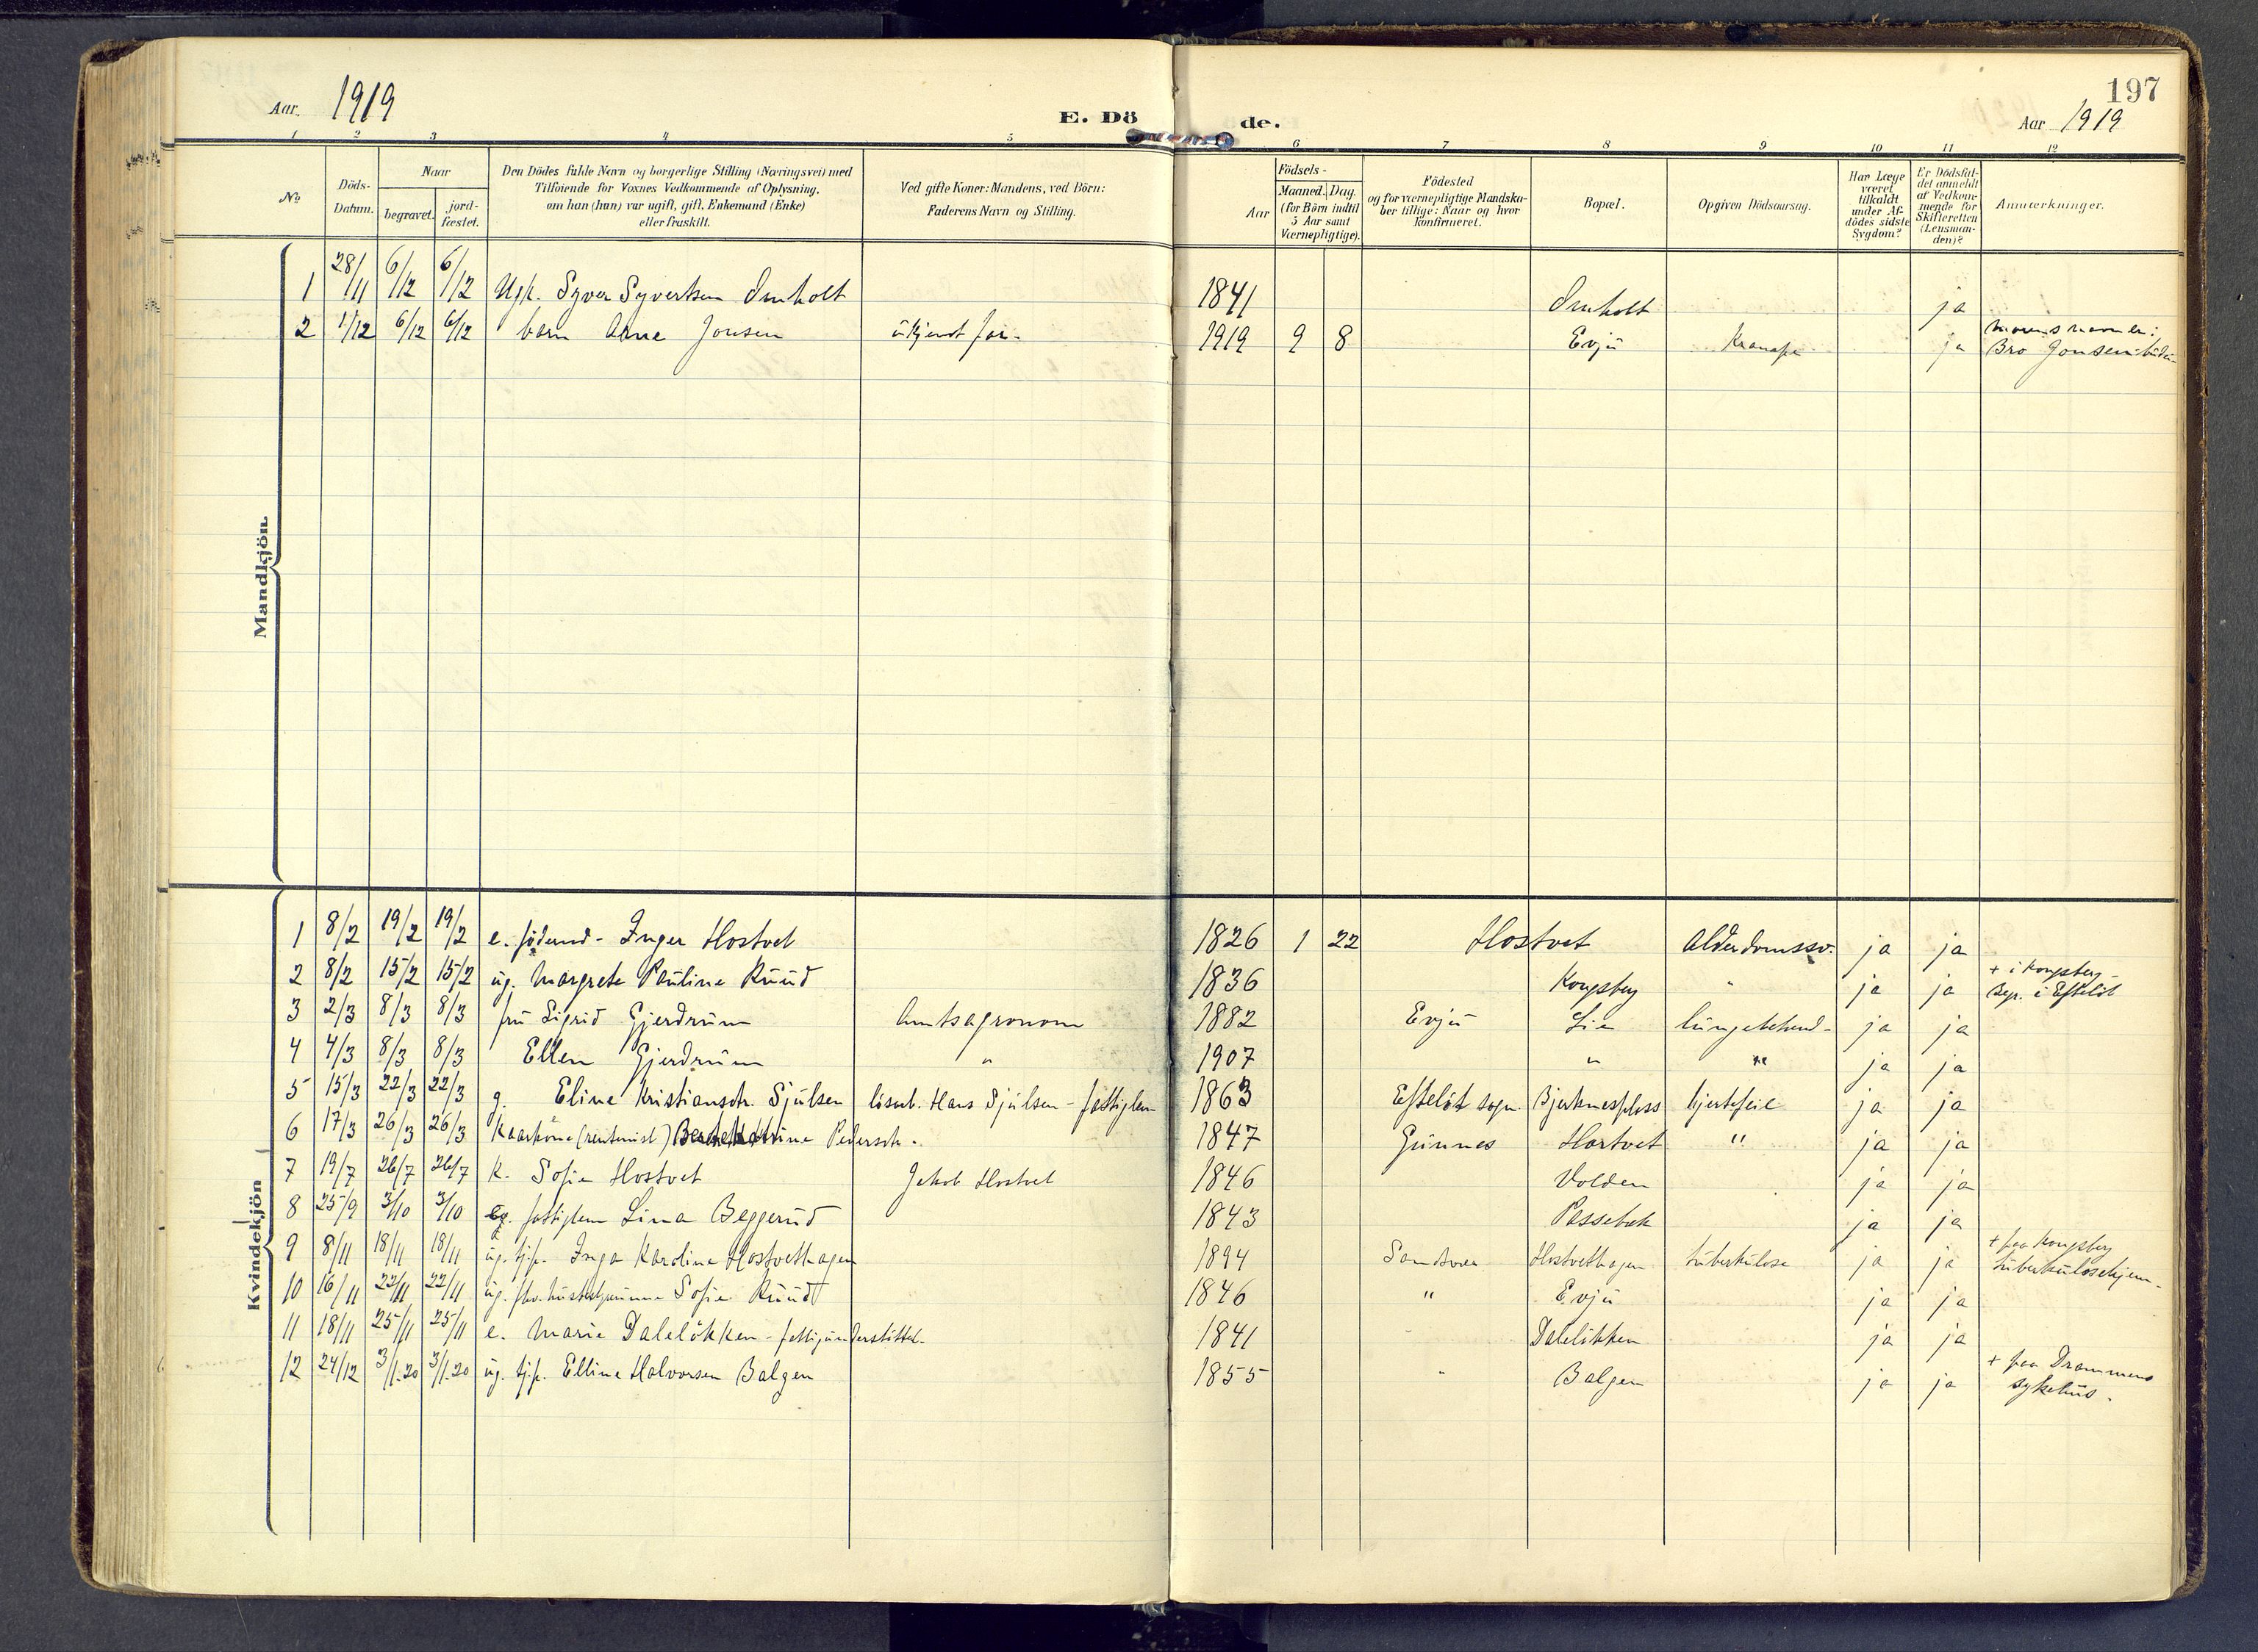 197
Aar. 1919
E. Dö de.
Aar 1919
1 2 3 4 5 6 7 8 9 10 11 12
No
Döds-Datum.
Naar
begravet.
jord-fæstet.
Den Dödes fulde Navn og borgerlige Stilling (Næringsvei) med
Tilföiende for Voxnes Vedkommende af Oplysning,
om han (hun) var ugift, gift, Enkemand (Enke)
eller fraskilt.
Ved gifte Koner: Mandens, ved Börn:
Faderens Navn og Stilling.
Födsels-
Aar
Maaned. Dag.
(for Börn indtil
5 Aar samt
Værnepligtige).
Födested
og for værnepligtige Mandska-
ber tillige: Naar og hvor
konfirmeret.
Bopæl.
Opgiven Dödsaarsag.
Har Læge
været
tilkaldt
under Af-
dödes sidste
Sygdom?
Er Dödsfal-
det anmeldt
af Vedkom-
mende for
Skifteretten
(Lensman-
den)?
Anmærkninger.
Mandkjön.
1 28/11 6/12 6/12 Ugk. Syver Syvertsen Omholt 1841 Omholt ja
2 1/12 6/12 6/12 barn Arne Jonsen ukjendt far- 1919 9 8 Evju Krampe ja morens navn er:
Bro Jonsen
Kvindekjön
1 8/2 19/2 19/2 e. föderaad- Inger Hostvet 1826 1 22 Hostvet Alderdomssv. ja ja
2 8/2 15/2 15/2 ug. Margrete Pauline Ruud 1836 Kongsberg " ja ja + i Kongsberg-
Begr. i Efteløt
3 2/3 8/3 8/3 fru Sigrid Gjerdrum Amtsagronom 1882 Evju Lia lungebetend- ja ja
4 4/3 8/3 8/3 Ellen Gjerdrum " 1907 " " ja ja
5 15/3 22/3 22/3 g. Eline Kristiansdtr. Sjulsen lösarb. Hans Sjulsen - fattiglem 1863 Efteløt sogn Bjerknesplass hjertefeil ja ja
6 17/3 26/3 26/3 Kaarkone (rentenist) Pedersdtr. 1847 Gunnes Hostvet " ja ja
7 19/7 26/7 26/7 k. Sofie Hostvet Jakob Hostvet 1846 Volden ja ja
8 25/9 3/10 3/10 fattiglem Lina Beggerud 1843 Passebek ja ja
9 8/11 18/11 18/11 ug. tj.p. Inga Karoline Hostvethagen 1894 Sandsvær Hostvethagen tuberkulose ja ja + paa Kongsberg
tuberkulosehjem-
10 16/11 22/11 22/11 ug. fhv. Sofie Ruud 1846 " Evju ja ja
11 18/11 25/11 25/11 e. Marie Daleløkken - fattigunderstöttet- 1841 " Daleløkken ja ja
12 24/12 3/1.20 3/1.20 ug. tj.p. Elline Halvorsen Balgen 1855 " Balgen ja ja + paa Drammens
sykehus.